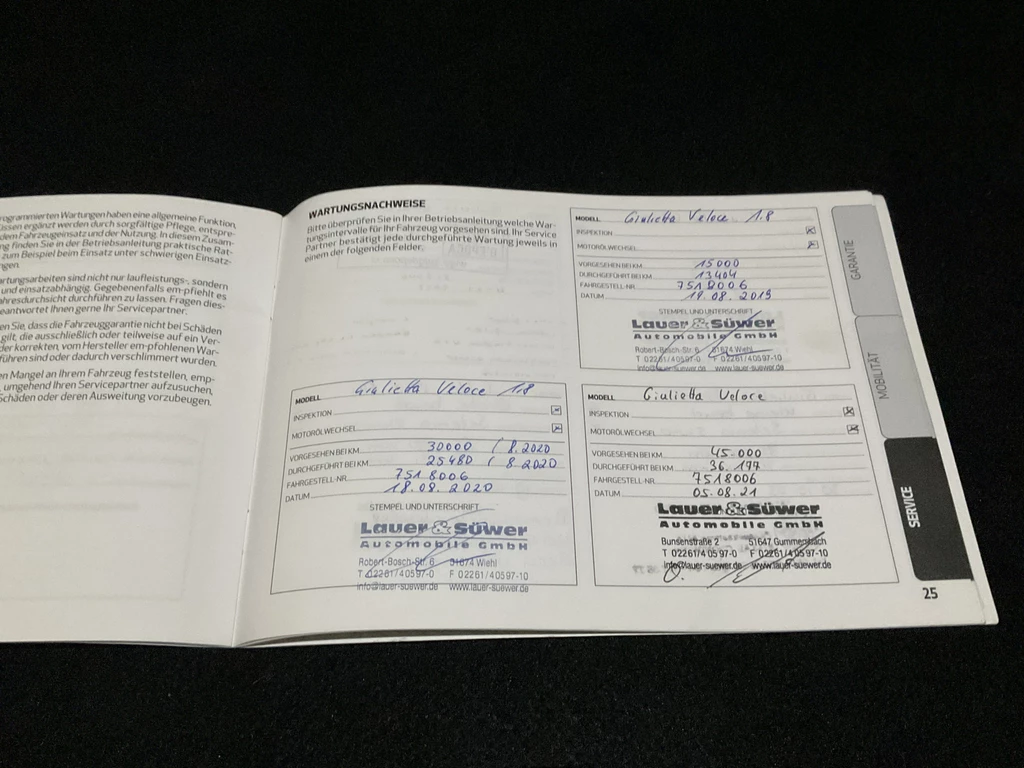 rogrammierten Wartungen haben eine allgemeine Funktion,
üssen ergänzt werden durch sorgfältige Pflege, entspre-
dem Fahrzeugeinsatz und der Nutzung. In diesem Zusam-
ng finden Sie in der Betriebsanleitung praktische Rat-
zum Beispiel beim Einsatz unter schwierigen Einsatz-
ngen.
artungsarbeiten sind nicht nur laufleistungs-, sondern
und einsatzabhängig. Gegebenenfalls em-pfiehlt es
ahresdurchsicht durchführen zu lassen. Fragen dies-
eantwortet Ihnen gerne Ihr Servicepartner.
en Sie, dass die Fahrzeuggarantie nicht bei Schäden
gilt, die ausschließlich oder teilweise auf ein Ver-
der korrekten, vom Hersteller em-pfohlenen War-
führen sind oder dadurch verschlimmert wurden.
en Mangel an Ihrem Fahrzeug feststellen, emp-
, umgehend Ihren Servicepartner aufzusuchen,
Schäden oder deren Ausweitung vorzubeugen.
WARTUNGSNACHWEISE
Bitte überprüfen Sie in Ihrer Betriebsanleitung welche War-
tungsintervalle für Ihr Fahrzeug vorgesehen sind. Ihr Service
Partner bestätigt jede durchgeführte Wartung jeweils in
einem der folgenden Felder.
MODELL Giulietta Veloce 1.8
INSPEKTION
MOTORÖLWECHSEL
VORGESEHEN BEI KM 15000
DURCHGEFÜHRT BEI KM 13404
FAHRGESTELL-NR. 7518006
DATUM 19.08.2019
STEMPEL UND UNTERSCHRIFT
Lauer & Süwer
Automobile GmbH
Robert-Bosch-Str. 6 51674 Wiehl
T 02261/40597-0 F 02261/40597-10
info@lauer-suewer.de www.lauer-suewer.de
MODELL Giulietta Veloce 1.8
INSPEKTION
MOTORÖLWECHSEL
VORGESEHEN BEI KM 30000 / 8.2020
DURCHGEFÜHRT BEI KM 25480 / 8.2020
FAHRGESTELL-NR. 7518006
DATUM 18.08.2020
STEMPEL UND UNTERSCHRIFT
Lauer & Süwer
Automobile GmbH
Robert-Bosch-Str. 6 51674 Wiehl
T 02261/40597-0 F 02261/40597-10
info@lauer-suewer.de www.lauer-suewer.de
MODELL Giulietta Veloce
INSPEKTION
MOTORÖLWECHSEL
VORGESEHEN BEI KM 45.000
DURCHGEFÜHRT BEI KM 36.177
FAHRGESTELL-NR. 7518006
DATUM 05.08.21
Lauer & Süwer
Automobile GmbH
Bunsenstraße 2 51647 Gummersbach
T 02261/40597-0 F 02261/40597-10
info@lauer-suewer.de www.lauer-suewer.de
GARANTIE
MOBILITÄT
SERVICE
25